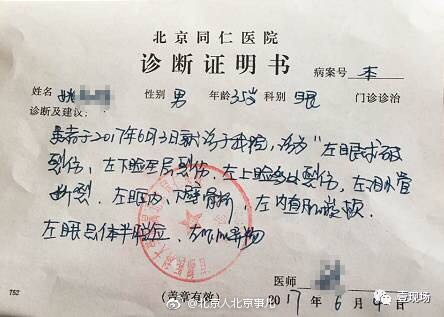 北京同仁医院
诊断证明书
病案号 本
姓名 姚 性别 男 年龄 35岁 科别 眼 门诊诊治
诊断及建议：
患者于2017年6月3日就诊于我院，诊为“左眼球破
裂伤，左下睑全层裂伤，左上睑多处裂伤，左泪小管
断裂，左眶内、下壁骨折，左内直肌
左眼晶体半脱位，左
医师
（盖章有效） 2017年6月
T52
@北京人北京事儿
壹现场